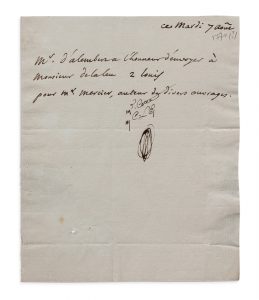 ce Mardi 7 aout
Mr. d'alembert a l'honneur d'envoyer à
Monsieur delaleu 2 louis
pour Mr. mercier, auteur de divers ouvrages.